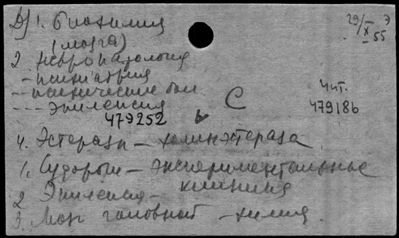 1. биохимия
(мозга)
29/X 55 Э
2 невропатология
- психиатрия
-- психические бол
--- эпилепсия
Чит.
479186
479252
С
4. Эстеразы - холинэстераза
1. Судороги - экспериментальные
клиника
2 Эпилепсия -
3. Мозг головной - химия.